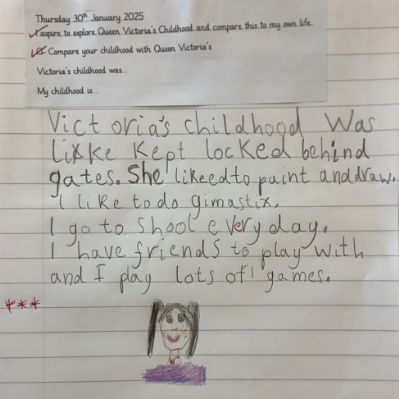 Thursday 30th January 2025
I aspire to explore Queen Victoria's Childhood and compare this to my own life.
LO Compare your childhood with Queen Victoria's
Victoria's childhood was...
My childhood is...
Victoria's childhood was
like kept locked behind
gates. She likeed to paint and draw.
I like to do gimastix.
I go to shool every day.
I have friends to play with
and I play lots of games.